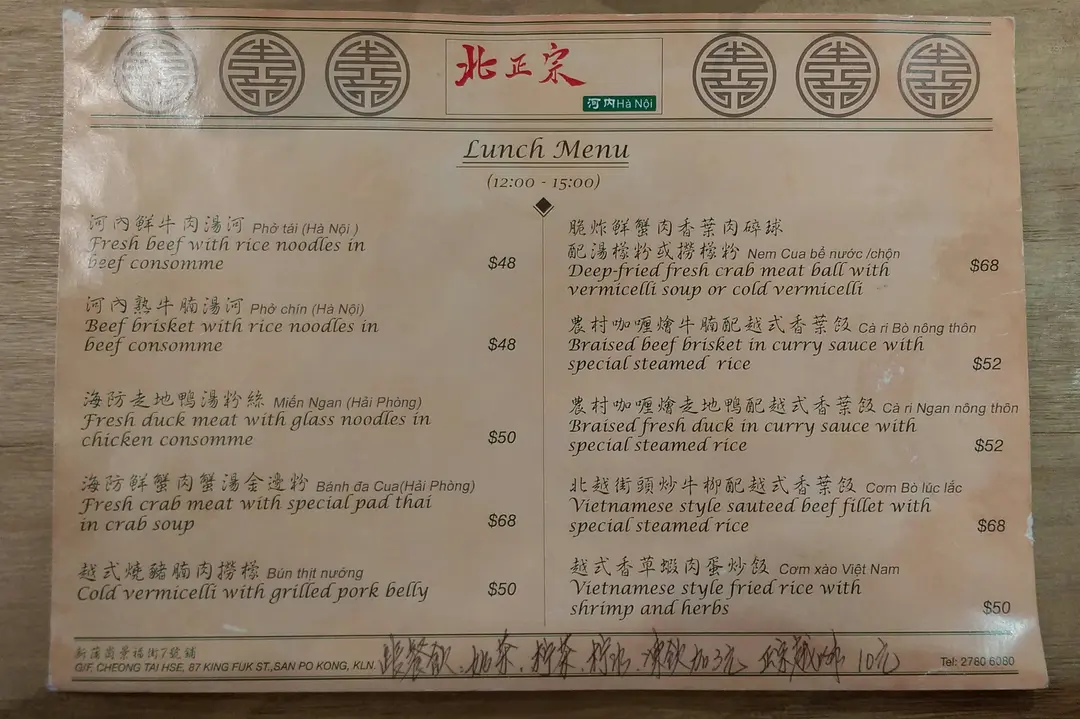 北正宗
河内Hà Nội
Lunch Menu
(12:00 - 15:00)
河內鮮牛肉湯河 Phở tái (Hà Nội )
Fresh beef with rice noodles in
beef consomme $48
河內熟牛腩湯河 Phở chín (Hà Nội)
Beef brisket with rice noodles in
beef consomme $48
海防走地鴨湯粉絲 Miến Ngan (Hải Phòng)
Fresh duck meat with glass noodles in
chicken consomme $50
海防鮮蟹肉蟹湯金邊粉 Bánh đa Cua(Hải Phòng)
Fresh crab meat with special pad thai
in crab soup $68
越式燒豬腩肉撈檬 Bún thịt nướng
Cold vermicelli with grilled pork belly $50
脆炸鮮蟹肉香葉肉碎球
配湯檬粉或撈檬粉 Nem Cua bể nước /chộn
Deep-fried fresh crab meat ball with $68
vermicelli soup or cold vermicelli
農村咖喱燴牛腩配越式香葉飯 Cà ri Bò nông thôn
Braised beef brisket in curry sauce with
special steamed rice $52
農村咖喱燴走地鴨配越式香葉飯 Cà ri Ngan nông thôn
Braised fresh duck in curry sauce with
special steamed rice $52
北越街頭炒牛柳配越式香葉飯 Cơm Bò lúc lắc
Vietnamese style sauteed beef fillet with
special steamed rice $68
越式香草蝦肉蛋炒飯 Cơm xào Việt Nam
Vietnamese style fried rice with
shrimp and herbs $50
新蒲崗景福街7號舖
G/F, CHEONG TAI HSE, 87 KING FUK ST.,SAN PO KONG, KLN.
餐飲 奶茶 柠茶 柠水 凍飲加3元 10元
Tel: 2760 6080